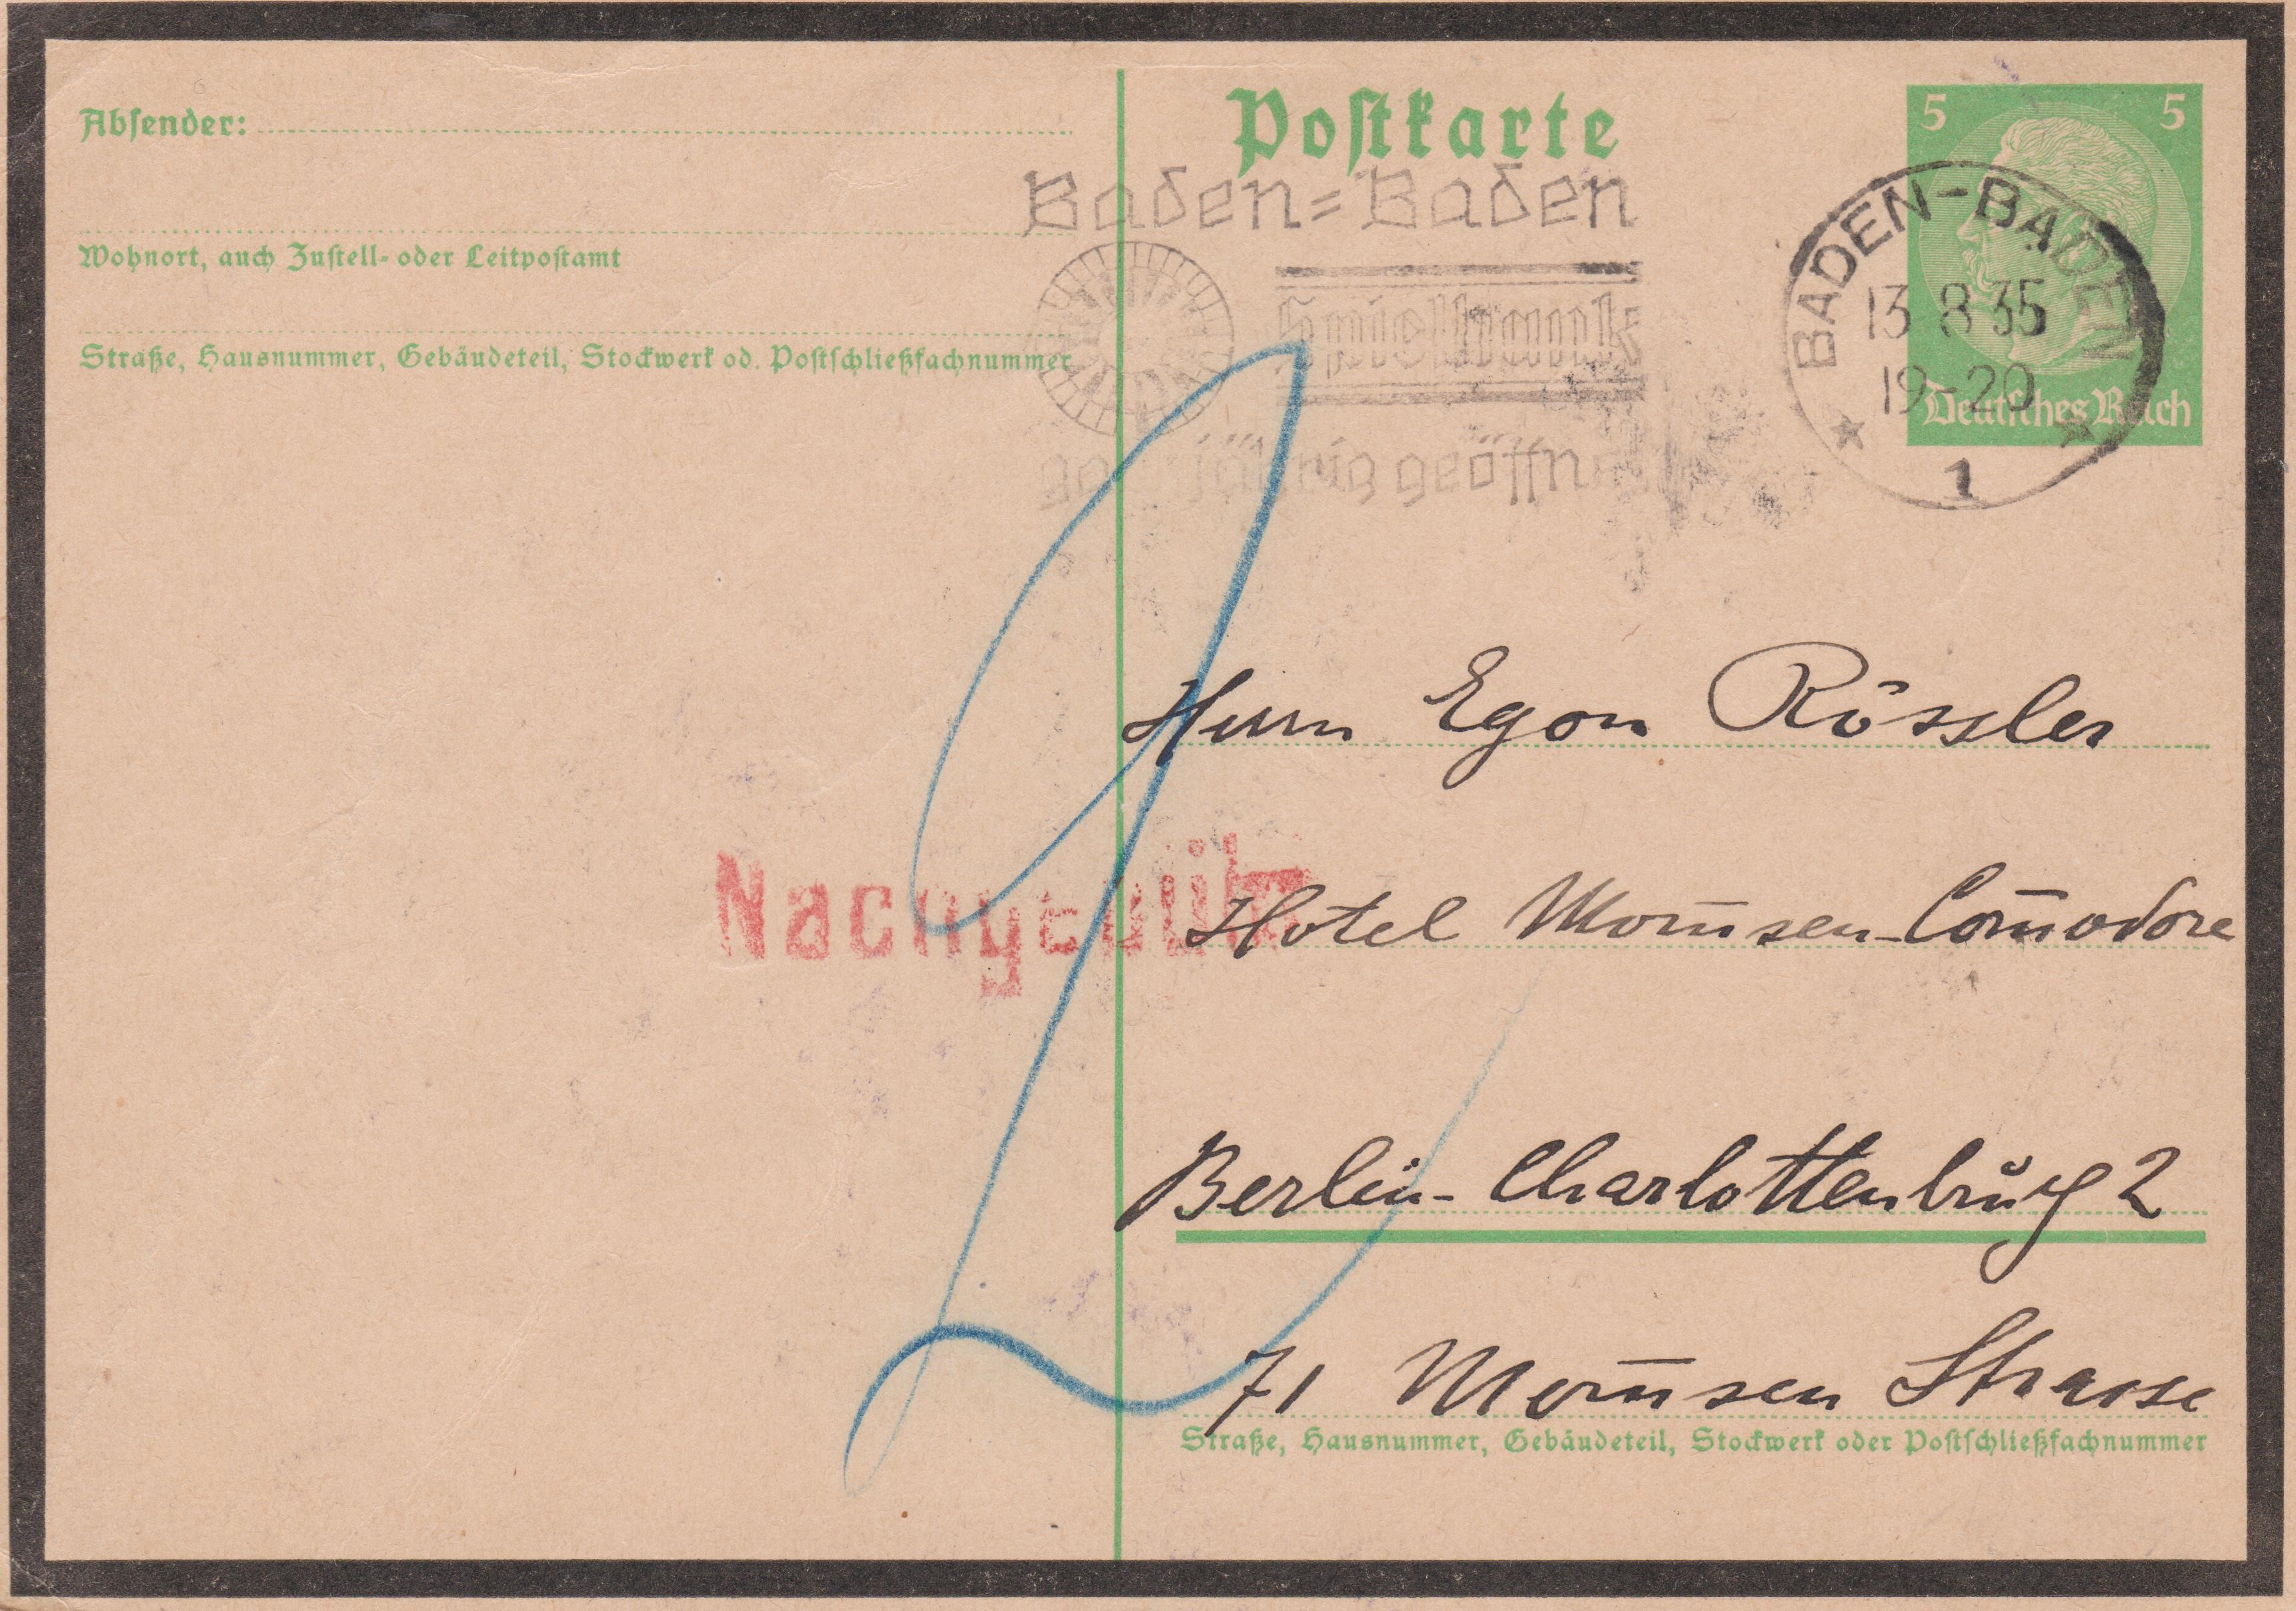 Absender:
Wohnort, auch Zustell- oder Leitpostamt
Straße, Hausnummer, Gebäudeteil, Stockwerk od. Postschließfachnummer
Postkarte
Baden=Baden
Spielbank
jährig geöffn
5 5
Deutsches Reich
BADEN-BADEN
13.8.35
19-20
1
Herrn Egon Rössler
Nachgebüh
Hotel Mom̅sen-Com̅odore
Berlin-Charlottenburg 2
71 Mom̅sen Strasse
Straße, Hausnummer, Gebäudeteil, Stockwerk oder Postschließfachnummer